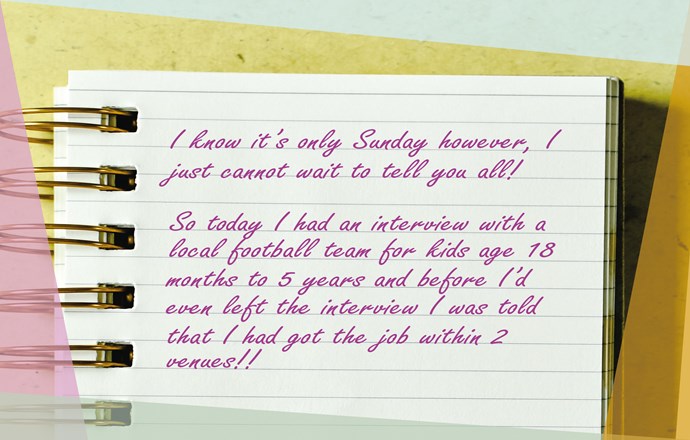 I know it's only Sunday however, I
just cannot wait to tell you all!
So today I had an interview with a
local football team for kids age 18
months to 5 years and before I'd
even left the interview I was told
that I had got the job within 2
venues!!